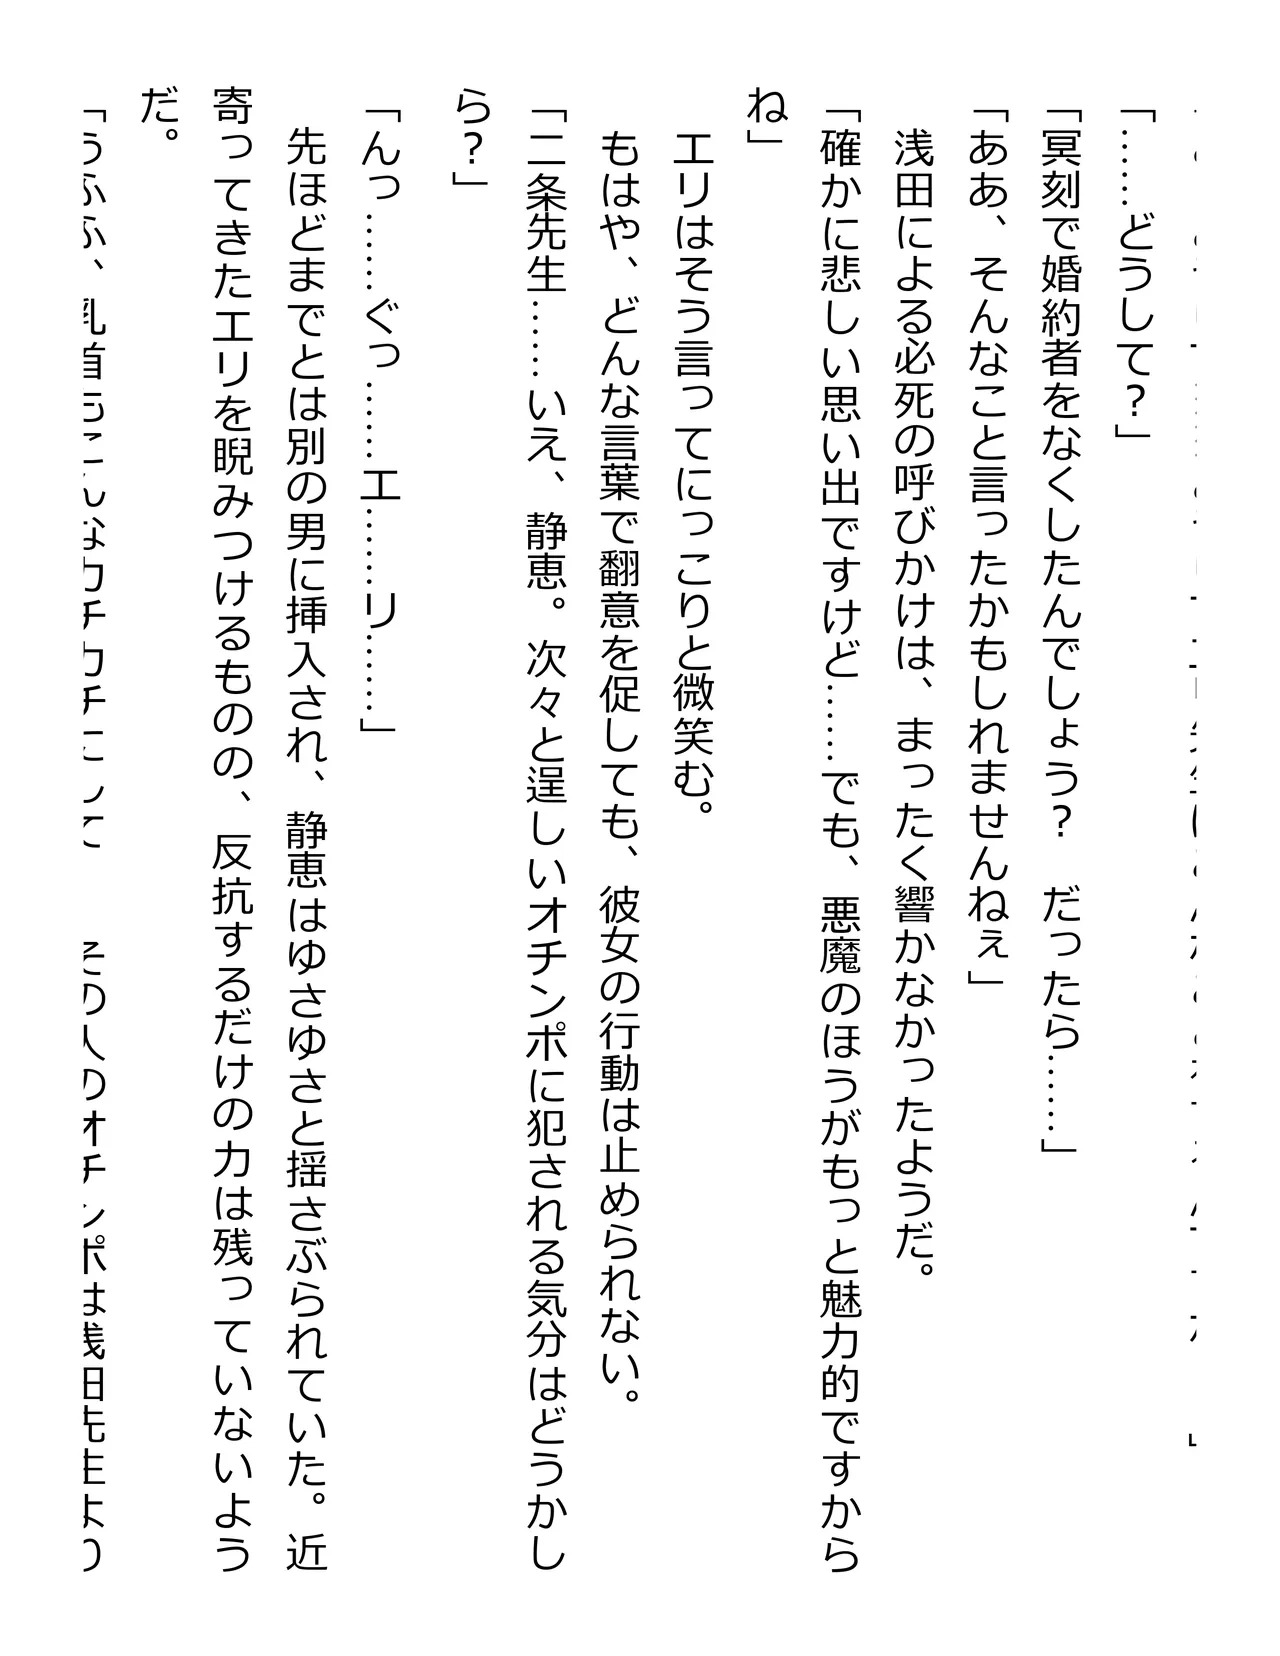 「……どうして？」
「冥刻で婚約者をなくしたんでしょう？　だったら……」
「ああ、そんなこと言ったかもしれませんねぇ」
　浅田による必死の呼びかけは、まったく響かなかったようだ。
「確かに悲しい思い出ですけど……でも、悪魔のほうがもっと魅力的ですから
ね」
　エリはそう言ってにっこりと微笑む。
　もはや、どんな言葉で翻意を促しても、彼女の行動は止められない。
「二条先生……いえ、静恵。次々と逞しいオチンポに犯される気分はどうかし
ら？」
「んっ……ぐっ……エ……リ……」
　先ほどまでとは別の男に挿入され、静恵はゆさゆさと揺さぶられていた。近
寄ってきたエリを睨みつけるものの、反抗するだけの力は残っていないよう
だ。
「うふふ、乳首もこんなカチカチにして　　その人のオチンポは浅田先生より